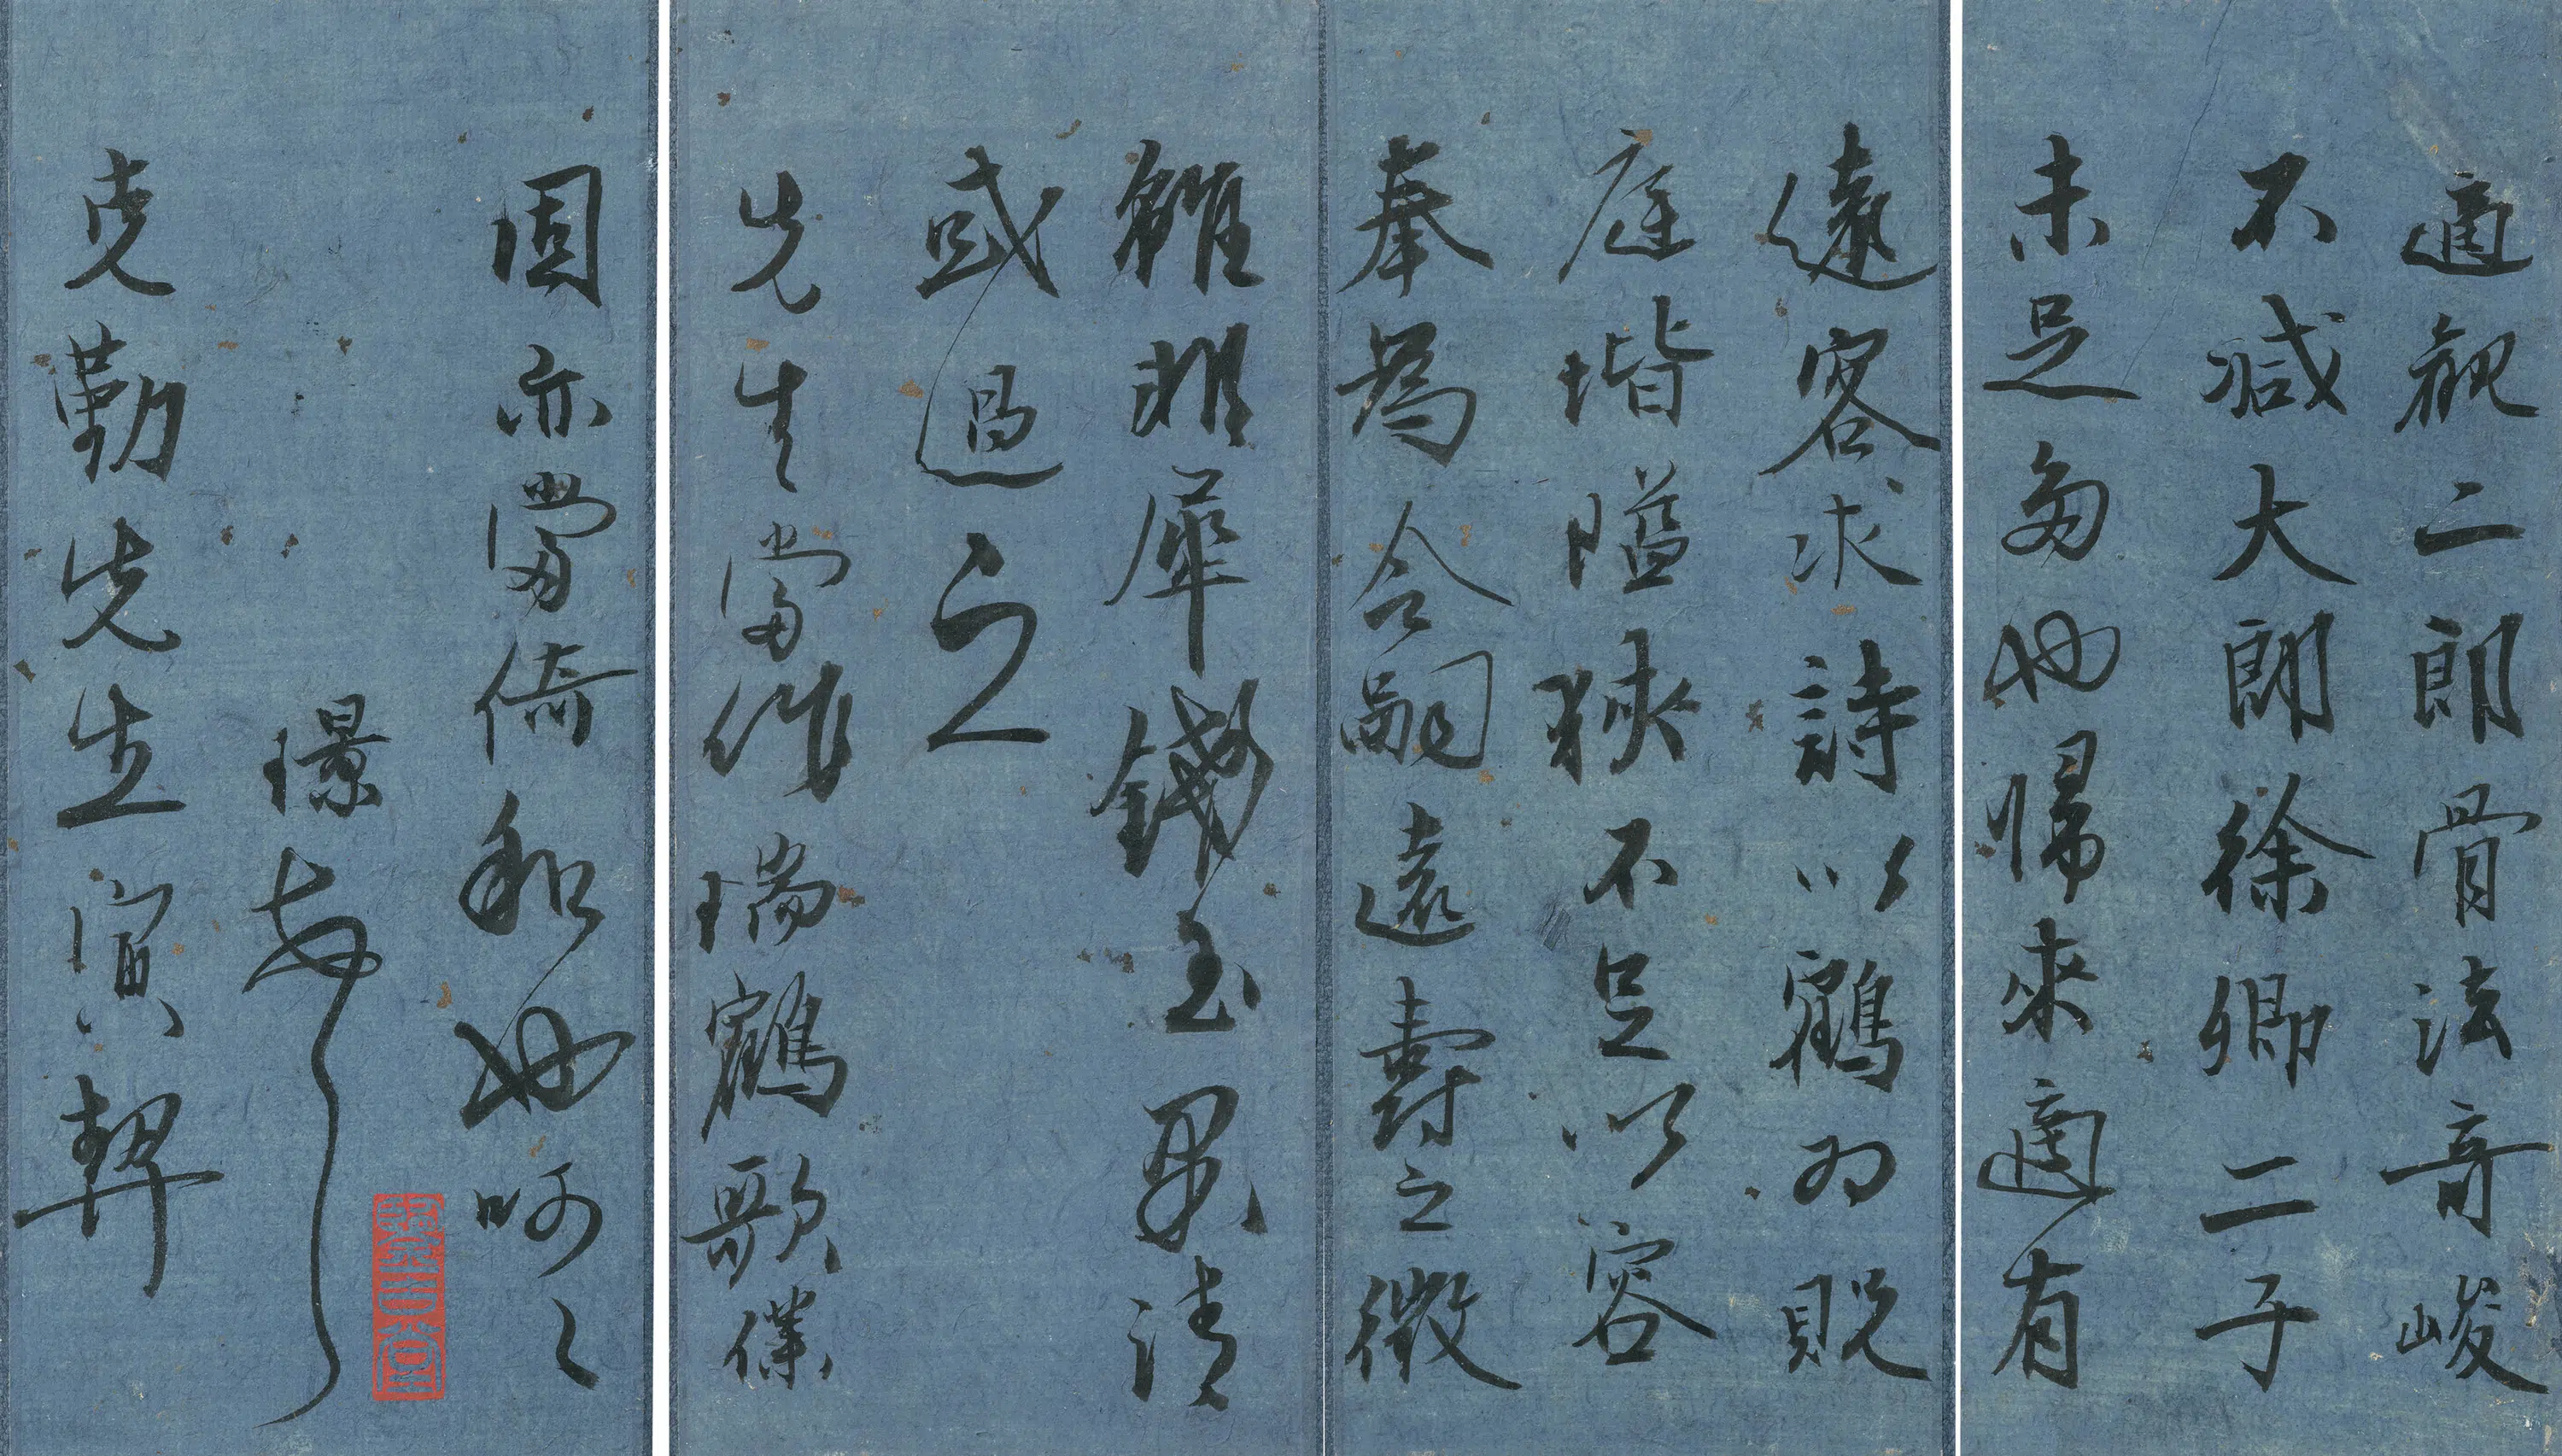 適視二郎骨法奇峻
不減大郎徐卿二子
未足多也歸來適有
遠客求詩以鶴為貺
庭堦隘狹不足以容
奉為令嗣遠壽之徵
雖非犀錢玉果清
或過之
先生當作瑞鶴歌僕
固亦當倚和也呵〻
璟
克勤先生寅契